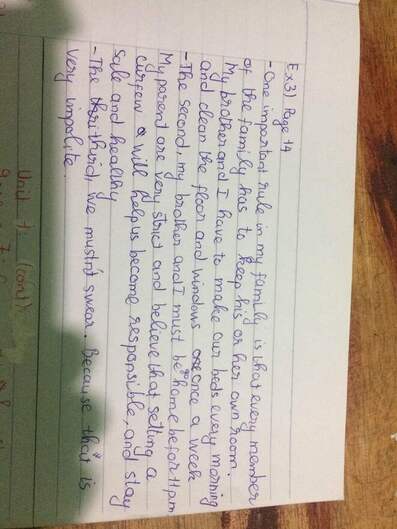 Ex3) Page 14
- One important rule in my family is that every member
of the family has to keep his or her own room.
My brother and I have to make our beds every morning
and clean the floor and windows once a week
- The second, my brother and I must be go home before 11 pm
My parent are very strict and believe that setting a
curfew will help us become responsible, and stay
safe and healthy
- The third, we mustn't swear. Because that is
very impolite.
Unit 1 (cont)